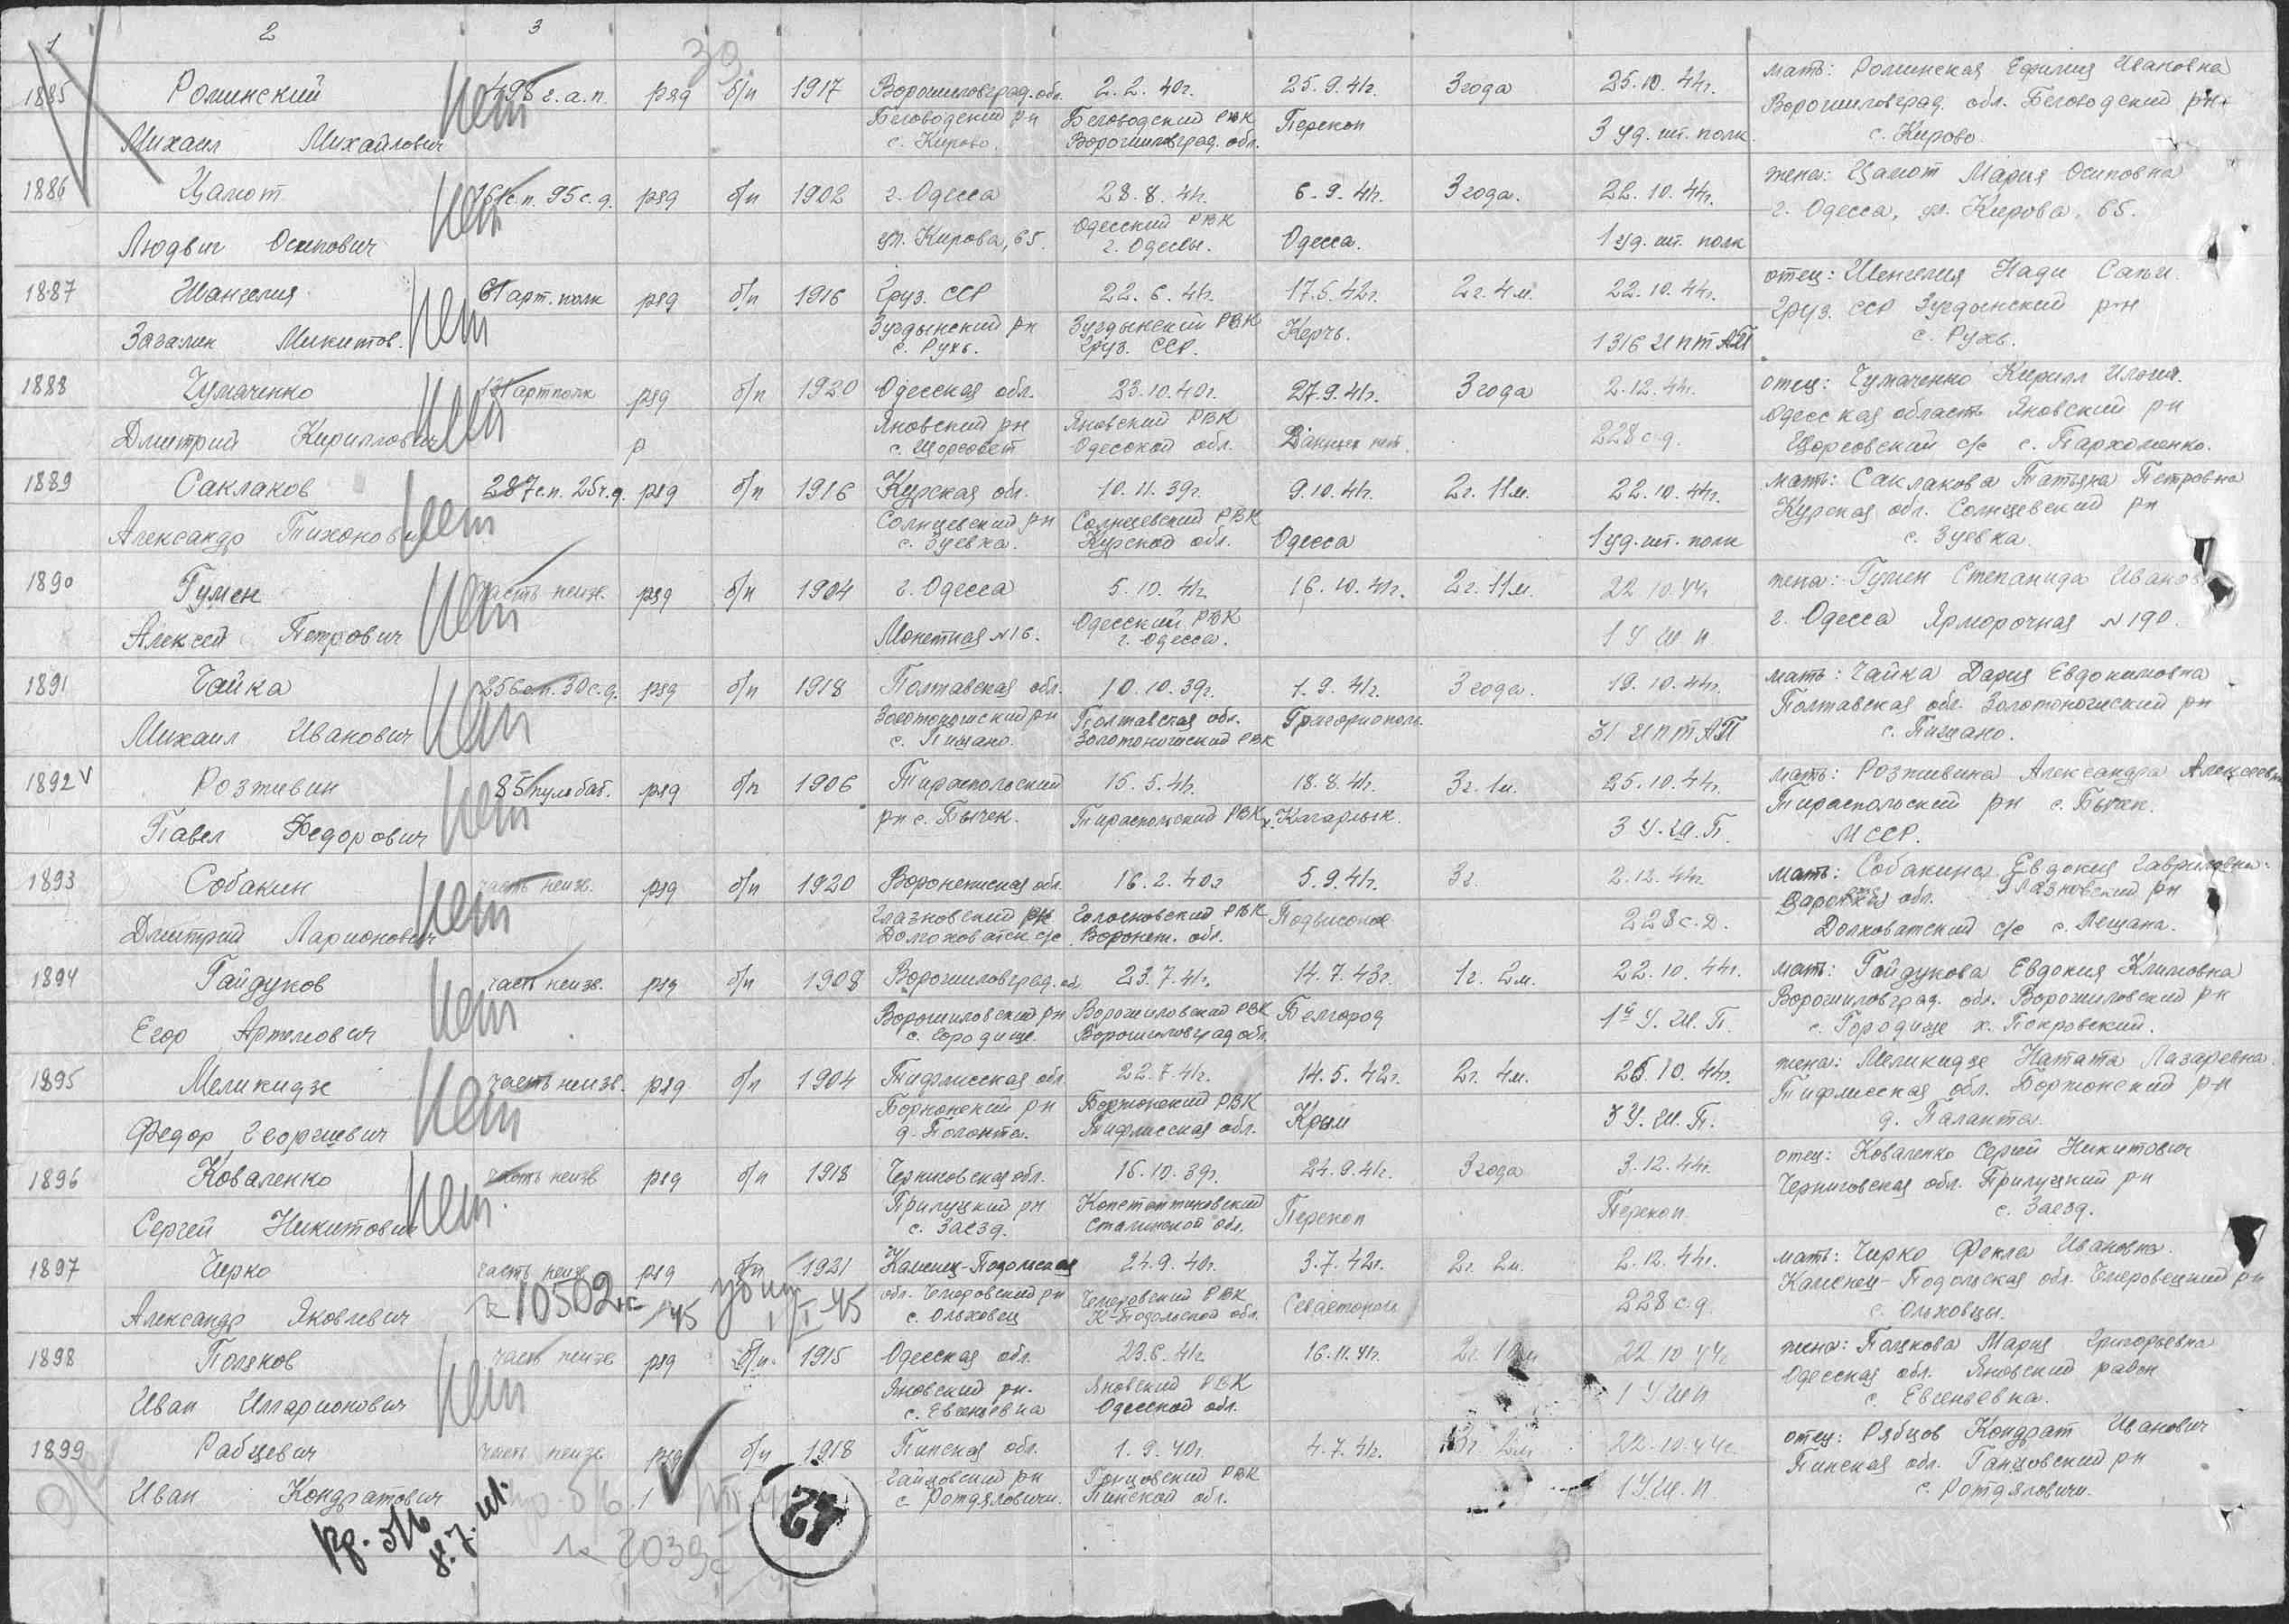 1 2 3
39
1885 Роминский 498 г.а.п. ряд б/п 1917 Ворошиловград. обл. 2.2.40г. 25.9.41г. 3 года 25.10.44г. мать: Роминская Ефилия Ивановна
Беловодский рн Беловодский РВК Ворошиловград. обл. Беловодский рн.
Михаил Михайлович нет с. Кирово. Ворошиловград. обл. Перекоп 3 уд. шт. полк. с. Кирово.
1886 Цамот с.п. 95 с.д. ряд б/п 1902 г. Одесса 28.8.41г. 6.9.41г. 3 года. 22.10.44г. жена: Цамот Мария Осиповна
нет Одесский РВК г. Одесса, ул. Кирова, 65.
Людвиг Осипович ул. Кирова, 65. г. Одессы. Одесса. 1 уд. шт. полк
1887 Шангелия 61 арт. полк ряд б/п 1916 Груз. ССР 22.6.41г. 17.5.42г. 2г. 4м. 22.10.44г. отец: Шенгелия
нет Зугдынский рн Зугдынский РВК Груз. ССР Зугдынский р-н
Микитов. с. Рухь. Груз. ССР. Керчь. 1316 ИПТАП с. Рухь.
1888 Чумаченко артполк ряд б/п 1920 Одесская обл. 23.10.40г. 27.9.41г. 3 года 2.12.44г. отец: Чумаченко Кирилл
нет Яновский рн Яновский РВК Одесская область Яновский рн
Дмитрий Кириллович р с. Щорсовет Одесской обл. Данных нет. 228 с.д. Щорсовский с/с с. Пархоменко.
1889 Саклаков 287 с.п. 25ч.д. ряд б/п 1916 Курская обл. 10.11.39г. 9.10.41г. 2г. 11м. 22.10.44г. мать: Саклакова Татьяна Петровна
нет Солнцевский рн Солнцевский РВК Курская обл. Солнцевский рн
Александр Тихонович с. Зуевка. Курской обл. Одесса 1 уд. шт. полк с. Зуевка.
1890 Гумен часть неизв. ряд б/п 1904 г. Одесса 5.10.41г. 16.10.41г. 2г. 11м. 22.10.44г. жена: Гумен Степанида Иванов
нет Одесский РВК г. Одесса Ярморочная №190.
Алексей Петрович Монетная №16. г. Одесса. 1 У Ш П
1891 Чайка 256 с.п. 30 с.д. ряд б/п 1918 Полтавская обл. 10.10.39г. 1.9.41г. 3 года. 19.10.44г. мать: Чайка Дария Евдокимовна
нет Золотоношский рн Полтавская обл. Григориополь Полтавская обл. Золотоношский рн
Михаил Иванович с. Пищано. Золотоношский РВК 31 ИПТАП с. Пищано.
1892 v Розживин 85 пульбат. ряд б/п 1906 Тираспольский 15.5.41г. 18.8.41г. 3г. 1м. 25.10.44г. мать: Розживина Александра Алексеевна
нет рн с. Тычек. Тираспольский РВК х. Кагарлык. Тираспольский рн с. Тычек.
Павел Федорович 3 У.Ш.П. МССР.
1893 Собакин часть неизв. ряд б/п 1920 Воронежская обл. 16.2.40г 5.9.41г. 3г. 2.12.44г. мать: Собакина Евдокия Гавриловна.
нет Глазновский рн РВК Подвисокое обл. Глазновский рн
Дмитрий Ларионович с/с Воронеж. обл. 228 с.д. Долховатский с/с с. Лещана.
1894 Гайдуков часть неизв. ряд б/п 1908 Ворошиловград. об. 23.7.41г. 14.7.43г. 1г. 2м. 22.10.44г. мать: Гайдукова Евдокия Климовна
нет Ворошиловский рн Ворошиловский РВК Белгород Ворошиловград. обл. Ворошиловский рн
Егор Артемович с. Городище. Ворошиловград обл. 1й У.Ш.П. с. Городище х. Покровский.
1895 Меликидзе часть неизв. ряд б/п 1904 Тифлисская обл. 22.7.41г. 14.5.42г. 2г. 4м. 25.10.44г. жена: Меликидзе Натата Лазаревна.
нет Боржомский рн Боржомский РВК Тифлисская обл. Боржомский р-н
Федор Георгиевич д. Полонта. Тифлисская обл. Крым 3 У.Ш.П. д. Паланта.
1896 Коваленко часть неизв ряд б/п 1918 Черниговская обл. 16.10.39г. 24.9.41г. 3 года 3.12.44г. отец: Коваленко Сергей Никитович
нет. Прилуцкий рн Константиновский Черниговская обл. Прилуцкий рн
Сергей Никитович с. Заезд. Сталинской обл. Перекоп Перекоп с. Заезд.
1897 Чирко часть неизв ряд б/п 1921 Каменец-Подольская 24.9.40г. 3.7.42г. 2г. 2м. 2.12.44г. мать: Чирко Фекла Ивановна.
10502 45 убит 1/I-45 обл. Чемеровский рн Чемеровский РВК Каменец-Подольская обл. Чемеровецкий рн
Александр Яковлевич с. Ольховец К-Подольской обл. Севастополь 228 с.д. с. Ольховцы.
1898 Поляков часть неизв ряд б/п. 1915 Одесская обл. 23.6.41г. 16.11.41г. 22.10.44г жена: Полякова Мария Григорьевна
нет Яновский рн. Яновский РВК Одесская обл. Яновский район
Иван Илларионович с. Евгеньевка Одесской обл. 1 У Ш П с. Евгеньевка.
1899 Рабцевич часть неизв ряд б/п 1918 Пинская обл. 1.9.40г. 4.7.41г. 22.10.44г отец: Рябцов Кондрат Иванович
рн Ганцовский РВК Пинская обл. Ганцовский рн
Иван Кондратович с. Ротдяловичи. Пинской обл. 1 У.Ш.П с. Ротдяловичи.
42
2039с